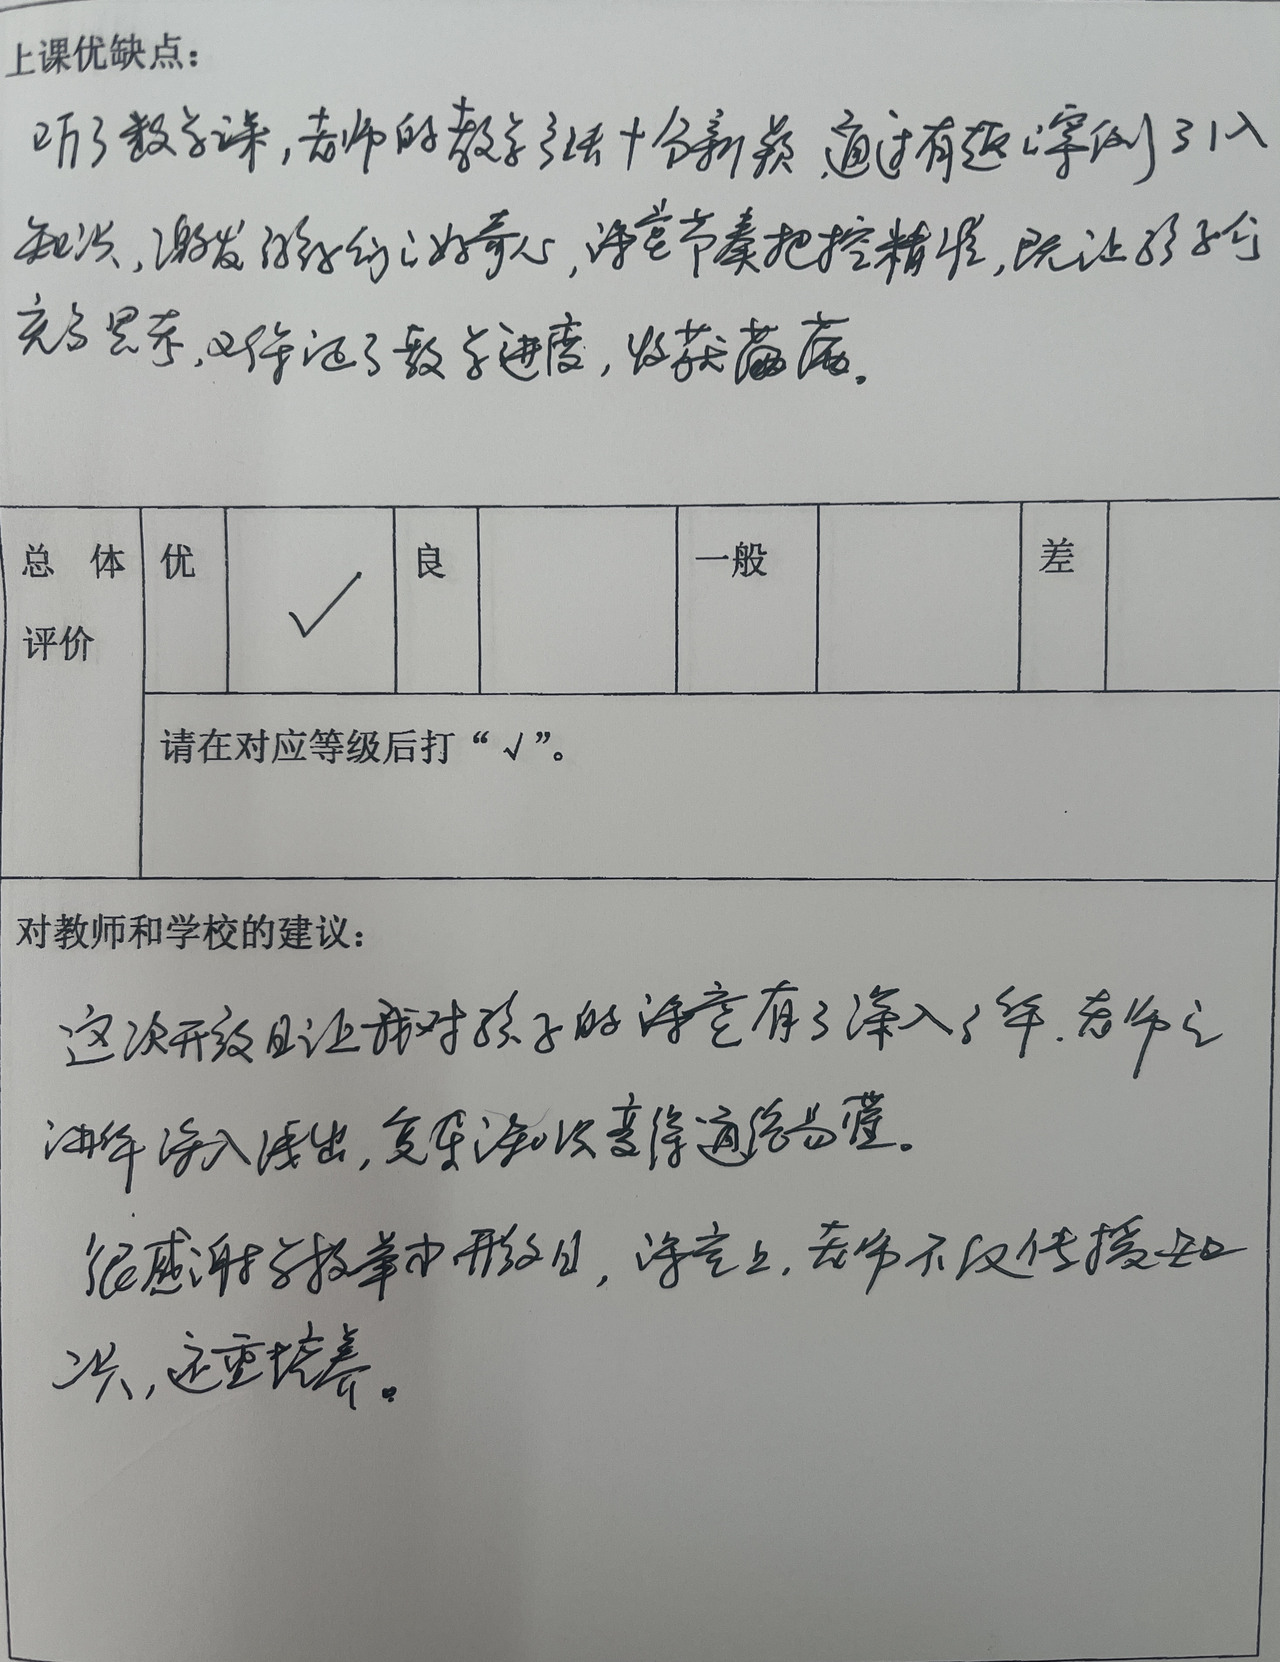 上课优缺点：
听了数学课，老师的教学方法十分新颖，通过有趣的案例引入
知识，激发了孩子们的好奇心，课堂节奏把控精准，既让孩子们
充分思考，又保证了教学进度，收获满满。
总体 优 ✓ 良 一般 差
评价
请在对应等级后打“√”。
对教师和学校的建议：
这次开放日让我对孩子的课堂有了深入了解．老师的
讲解深入浅出，复杂的知识变得通俗易懂。
很感谢学校举办开放日，课堂上，老师不仅传授知
识，还重培养。